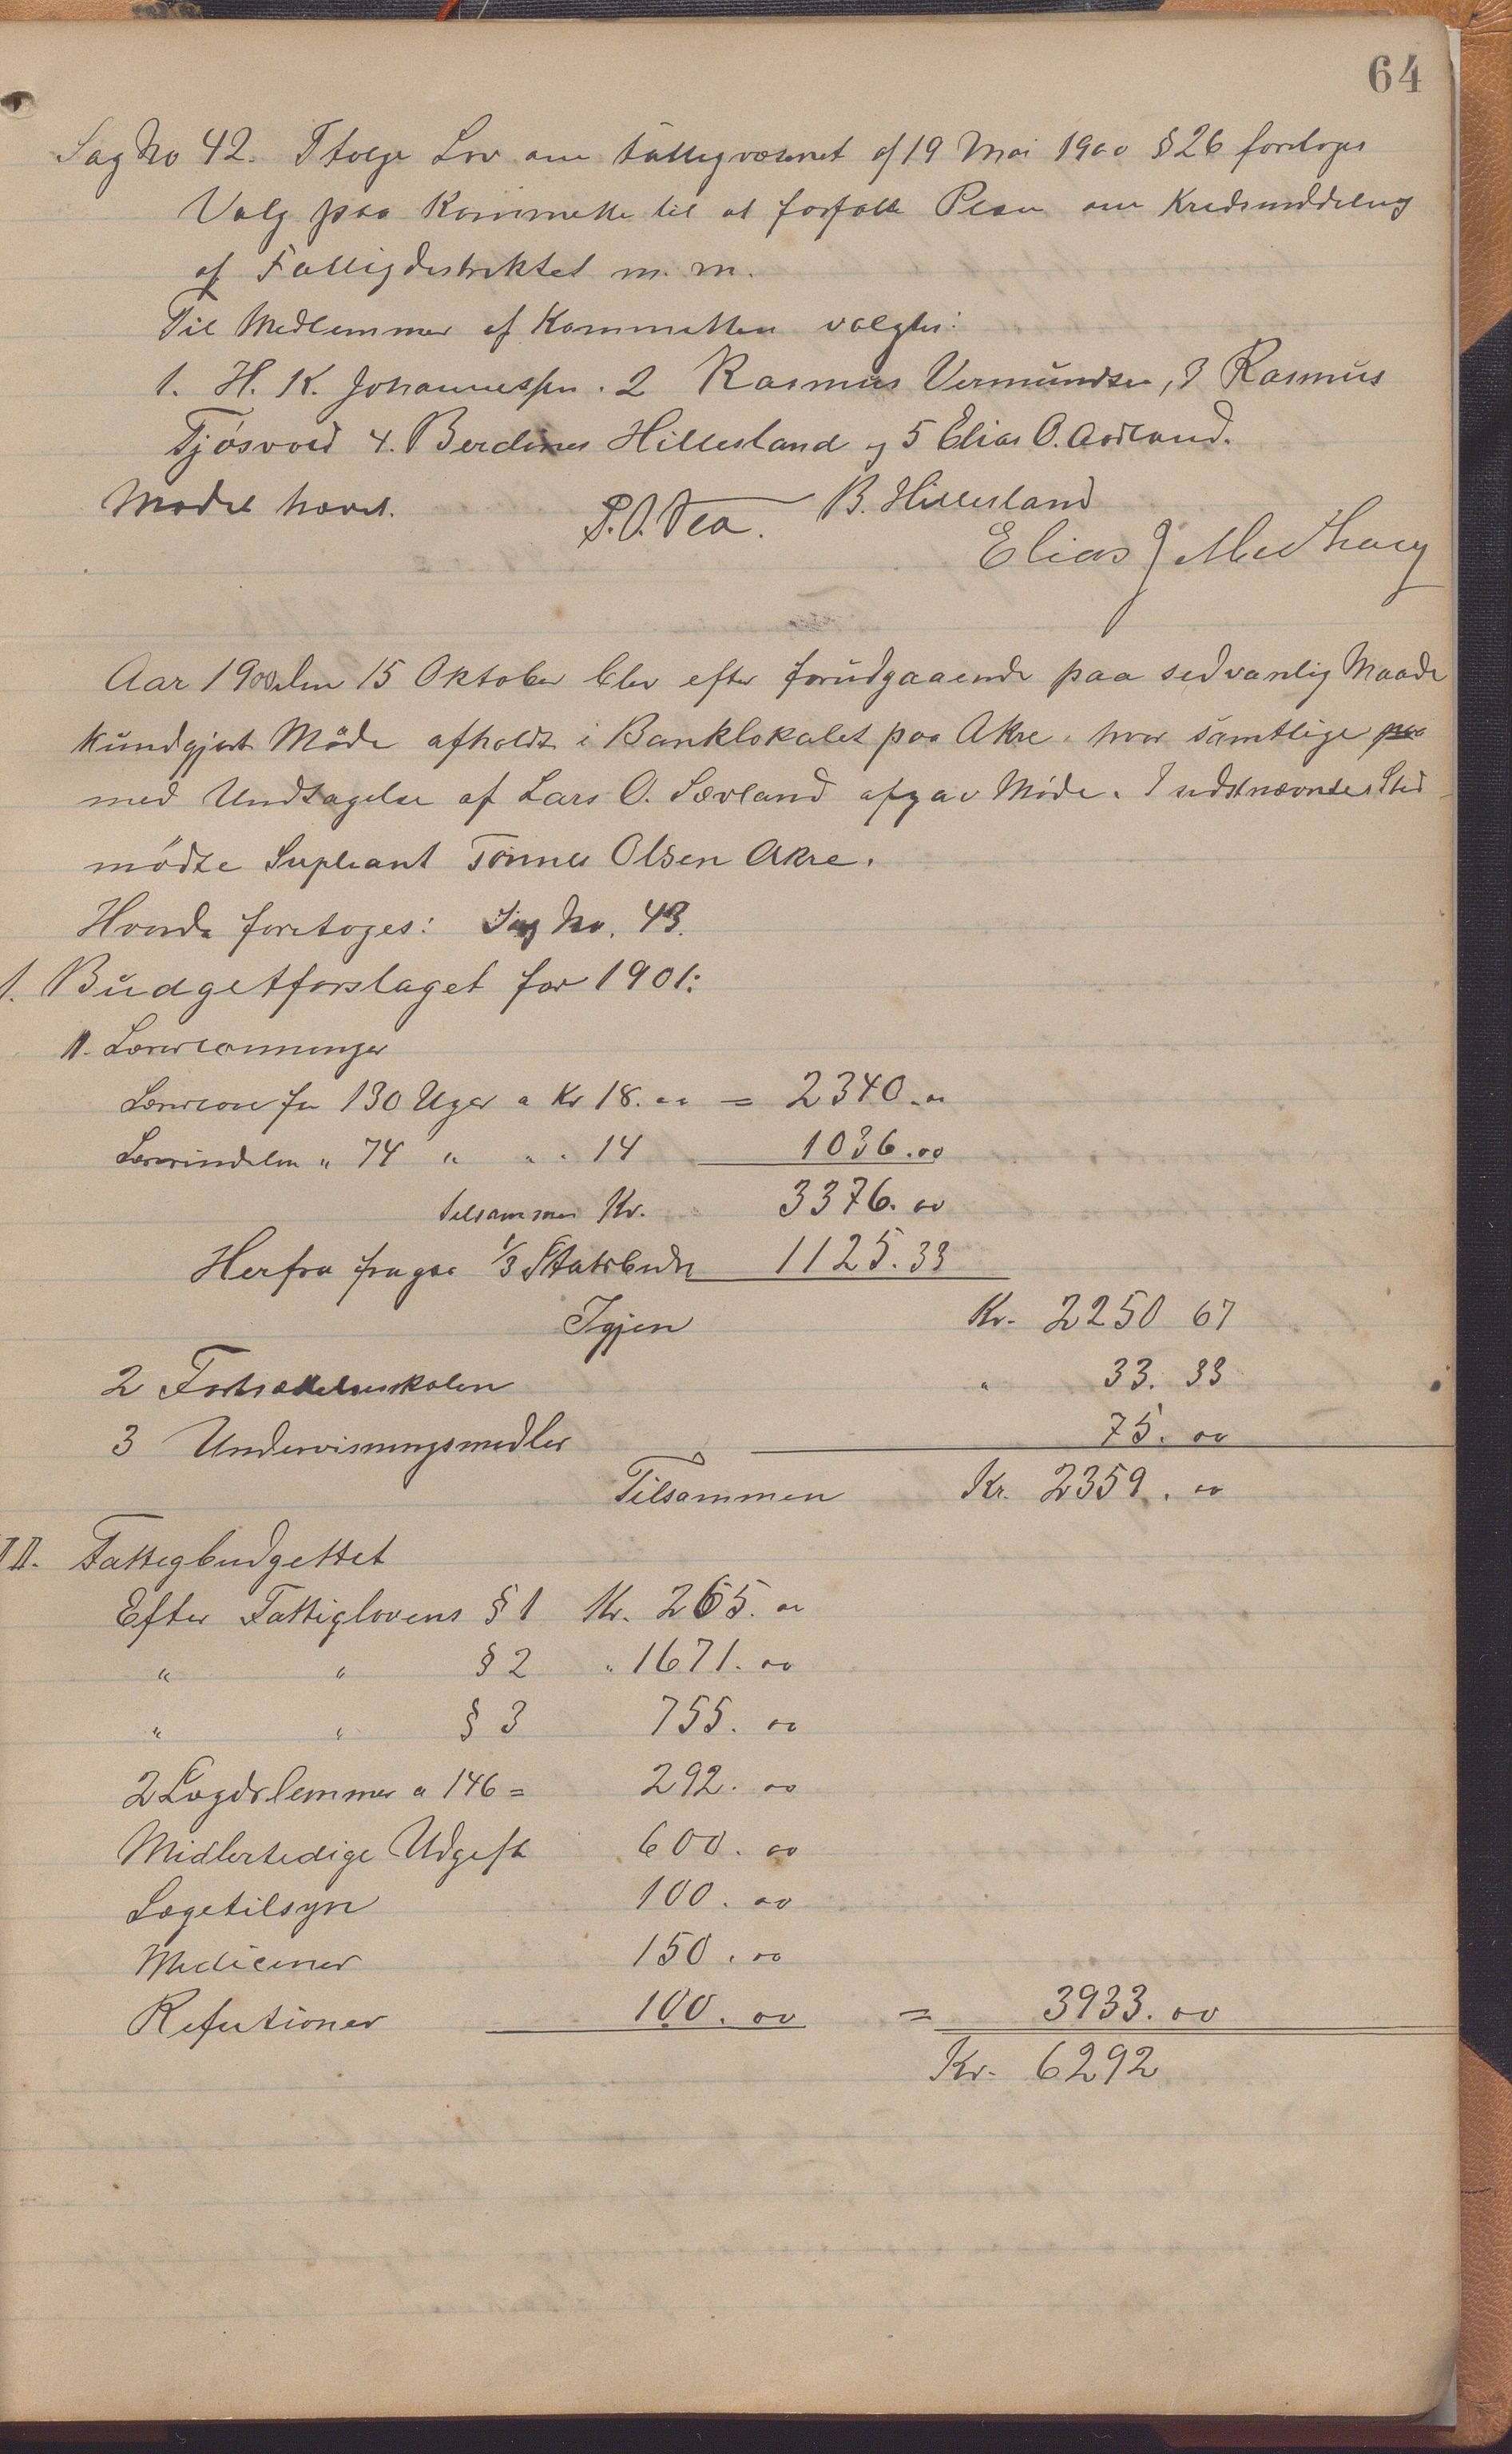 64
Sag No 42. Ifølge Lov om Fattigvæsenet af 19 Mai 1900 § 26 foretoges
Valg paa Kommette til at forfatte Plan om Kredsinddeling
af Fattigdistriktet m. m.
Til Medlemmer af Kommetten valgtes:
1. H. K. Johannessen. 2 Rasmus Vermundsen, 3 Rasmus
Tjøsvold 4. Berdines Hillesland og 5 Elias O. Aadland.
Mødet hævet.
P.O. Vea. B. Hillesland
Elias J
Aar 1900 den 15 Oktober blev efter forudgaaende paa sedvanlig Maade
kundgjort Møde afholdt i Banklokalet paa Akre. hvor samtlige paa
med Undtagelse af Lars O. Sævland afgav Møde. I sidstnævntes Sted
mødte Supleant Tønnes Olsen Akre.
Hvorda foretoges: Sag No. 43.
1. Budgetforslaget for 1901:
1. Lærerlønninger
Lærerløn for 130 Uger a Kr 18.00 = 2340.00
Lærerindeløn " 74 " " " 14 1036.00
Tilsammen Kr. 3376.00
Herfra fragaa 1/3 Statsbidr 1125.33
Igjen Kr. 2250 67
2 Fortsættelsesskolen " 33.33
3 Undervisningsmedler 75.00
Tilsammen Kr. 2359.00
II. Fattigbudgettet
Efter Fattiglovens § 1 Kr. 265.00
" " § 2 " 1671.00
" " § 3 755.00
2 Lægdslemmer a 146 = 292.00
Midlertedige Udgift 600.00
Lægetilsyn 100.00
Mediciner 150.00
Refutioner 100.00 = 3933.00
Kr. 6292